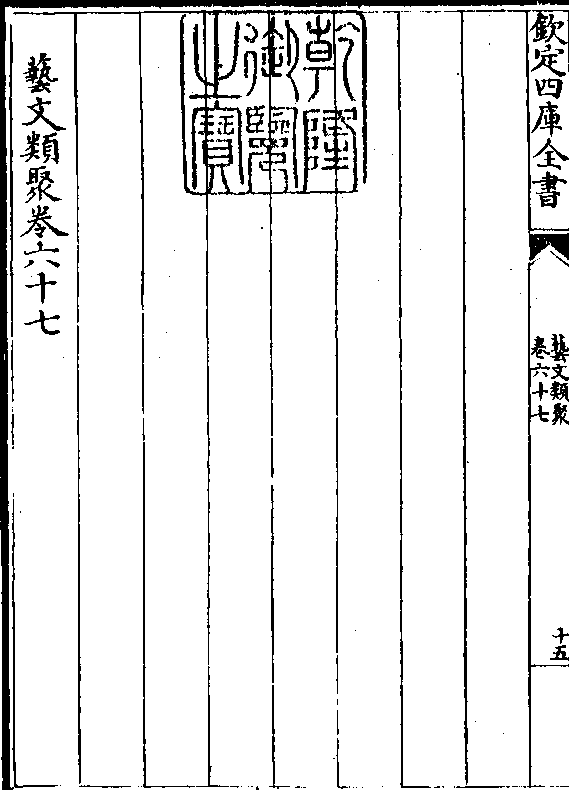 欽定四庫全書
藝文類聚
卷六十七
十五
乾隆
御覽
之寶
藝文類聚卷六十七